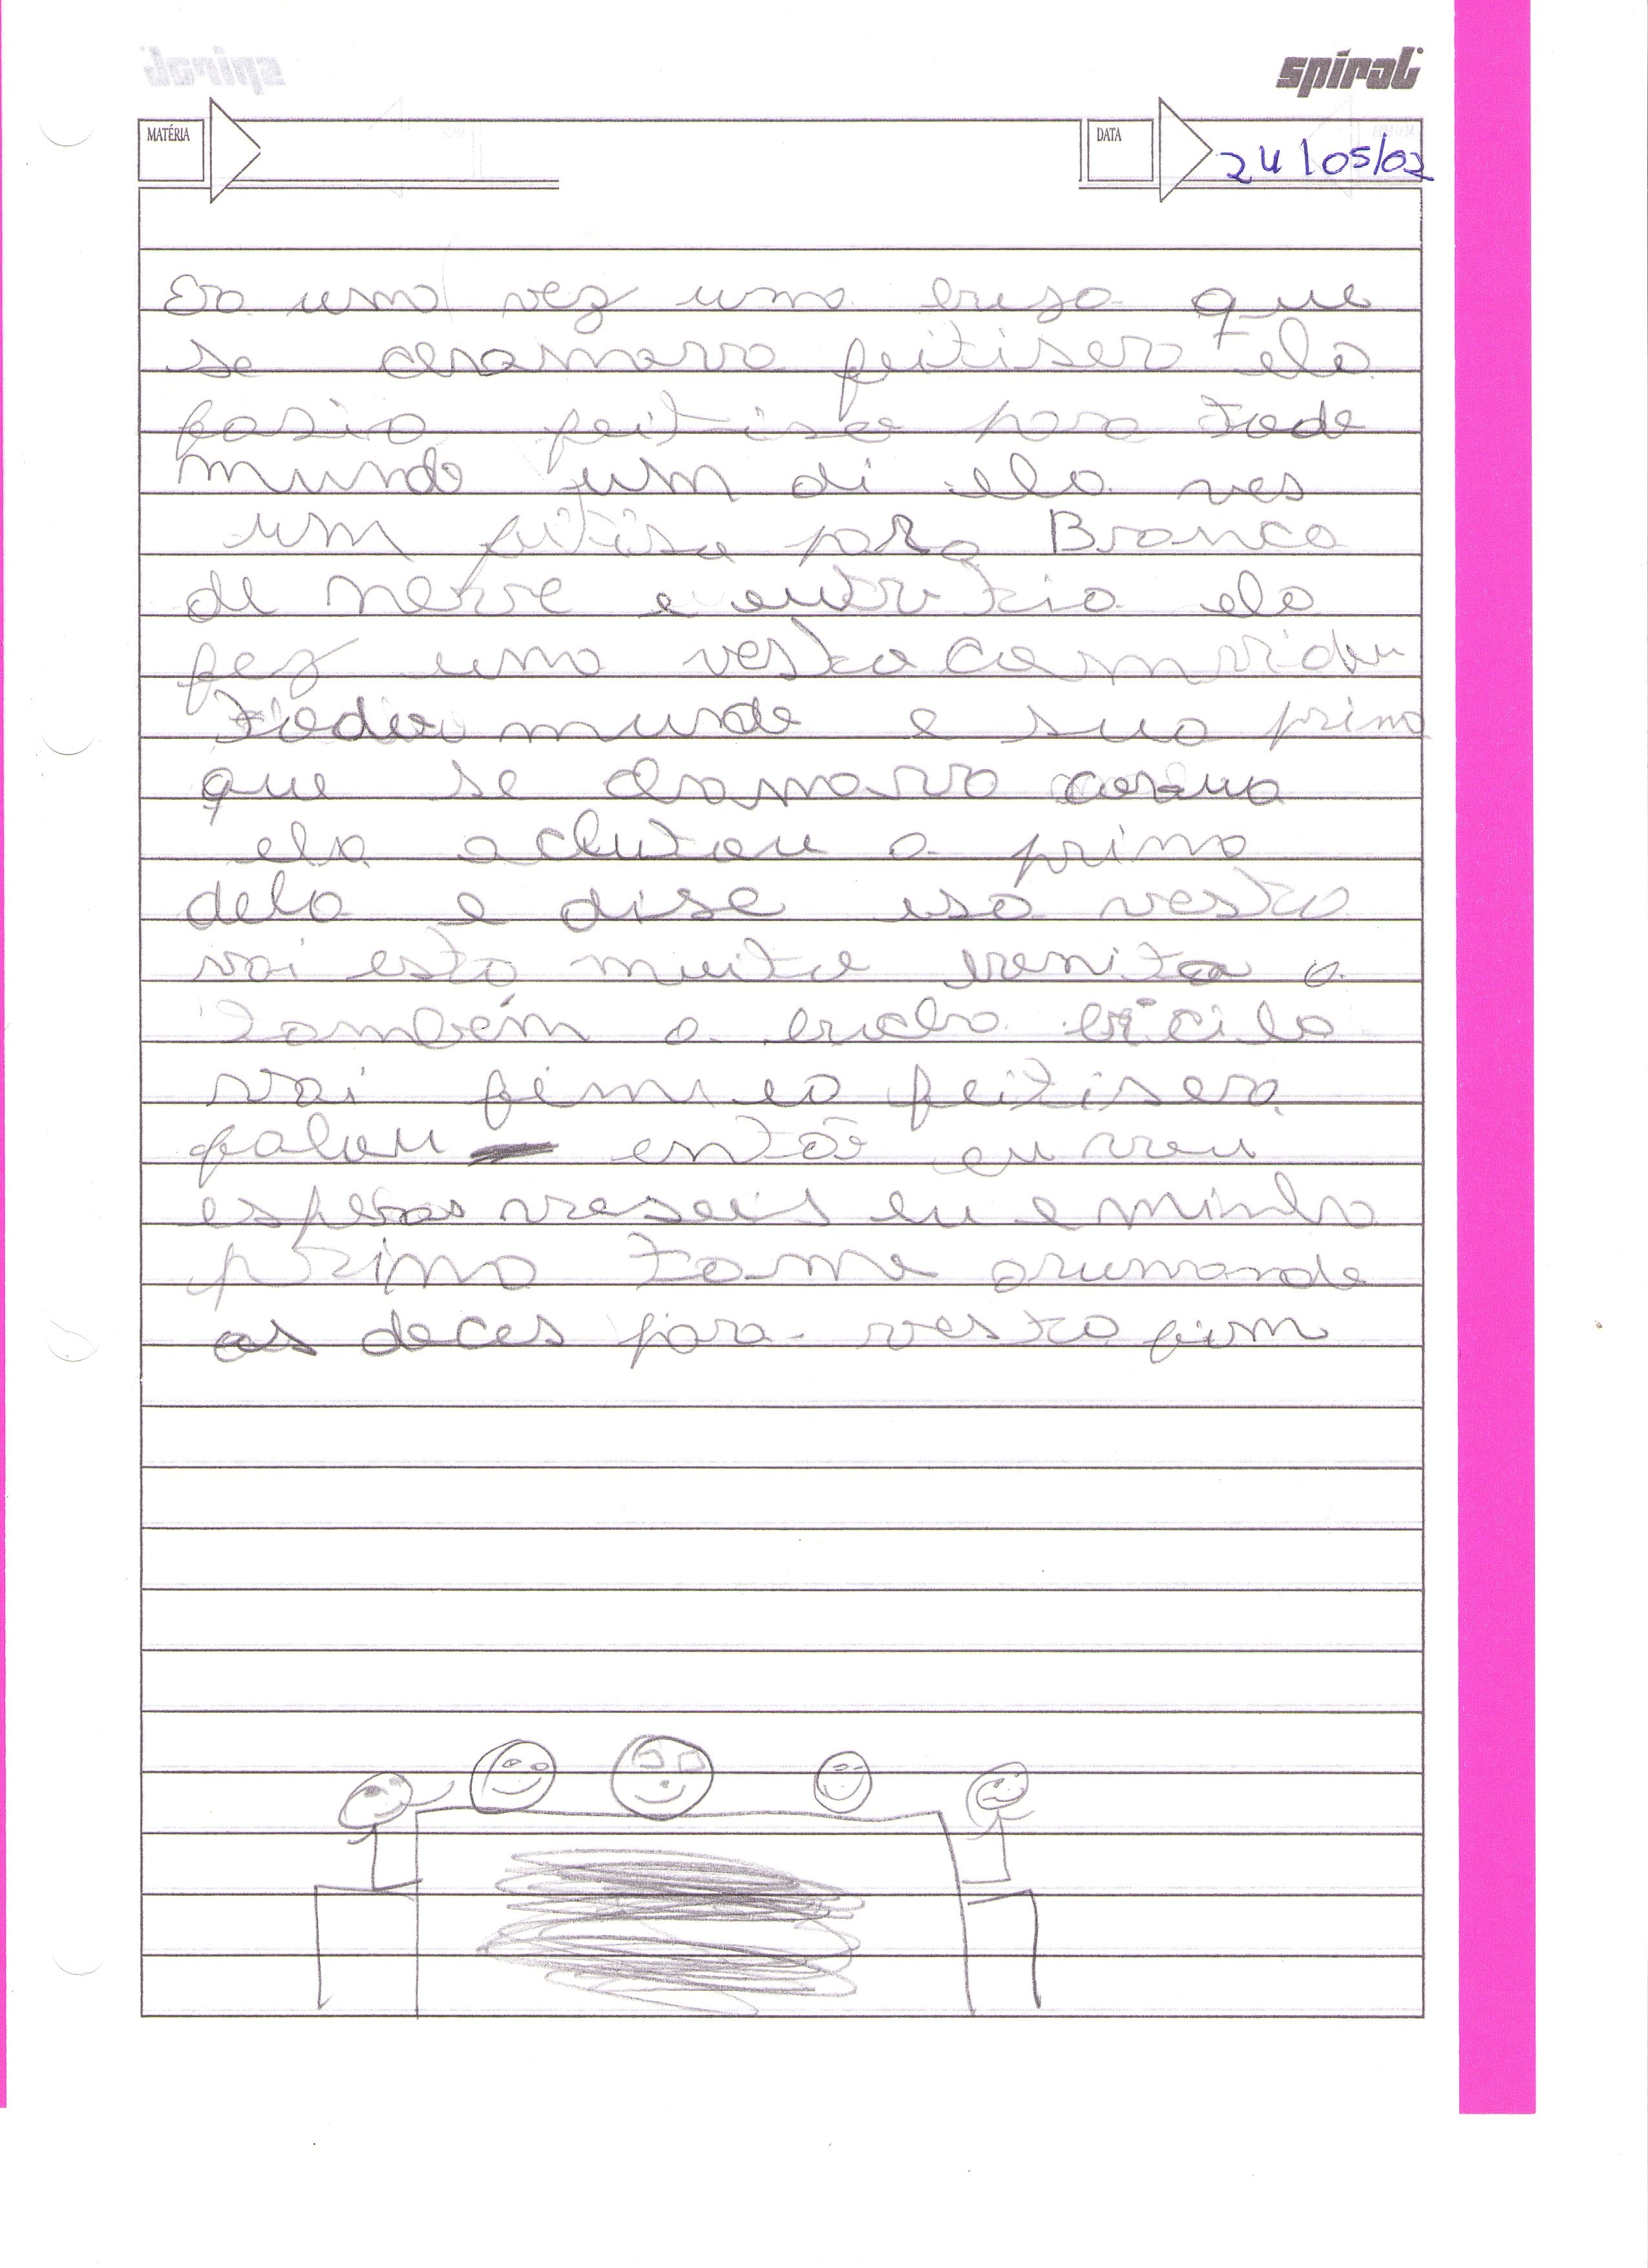 spiral
MATÉRIA
DATA
24/05/02
Era uma vez uma bruxa que
se chamava feitisera ela
fasia feitiso para todo
mundo um di ela ves
um fitiso para Branca
de neve e outro tia ela
fez uma vesta comvidou
todo mundo e sua prima
que se chamava
ela achutou a prima
dela e dise isa vesta
vai esta muito bonita a
também a
vai feitisera
falou então eu vou
espera voseis eu e minha
prima tamo arumando
os doces para vesta fim